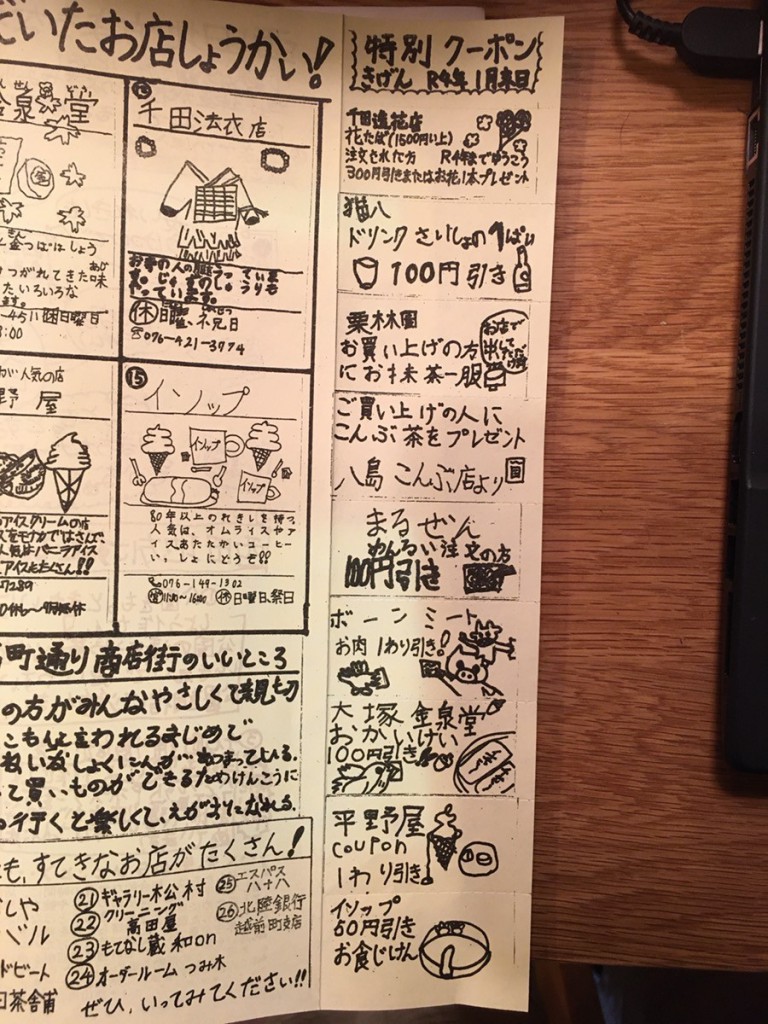 いたお店しょうかい!
泉堂
金つばはしょう
つがれてきた味
たいろいろな
日曜日
⑭
千田法衣店
っています。
㊡日曜、祝日
☎076-421-3774
人気の店
野屋
アイスクリームの店
人気はバニラアイス
アイスもたくさん!!
7289
⑮
イソップ
イソップ
イソップ
80年以上のれきしを持つ。
人気は、オムライスやア
イスあたたかいコーヒー
いっしょにどうぞ!!
076-149-1302
㊡日曜日、祭日
町通り商店街のいいところ
の方がみんなやさしくて親切
こもんと言われるまじめで
ねいなしょくにんが…あつまっている。
って買いものができるためけんこうに
行くと楽しくて、えがおになれる。
も、すてきなお店がたくさん!
しや
ベル
ドビート
茶舎
㉑ギャラリー松村
㉒クリーニング
高田屋
㉓もてなし蔵和on
㉔オーダールームつみ木
㉕エスパス
八十八
㉖北陸銀行
越前町支店
ぜひ、いってみてください!!
特別クーポン
きげん R4年1月末日
千田造花店
花たば(1500円以上)
注文された方 R4年までゆうこう
300円引きまたはお花1本プレゼント
猫八
ドリンクさいしょの1ぱい
100円引き
栗林園
お店で
出して
お買い上げの方
にお抹茶一服
ご買い上げの人に
こんぶ茶をプレゼント
八島こんぶ店より
まるぜん
めんるい注文の方
100円引き
ボーンミート
お肉1わり引き!
大塚金泉堂
おかいけい
100円引き
平野屋
coupon
1わり引き。
イソップ
50円引き
お食じけん